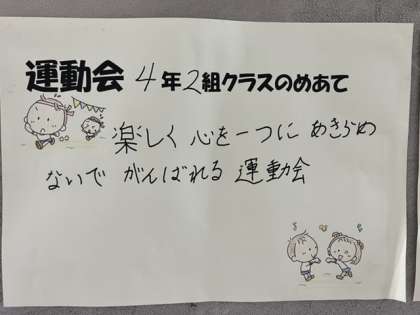 運動会 4年2組クラスのめあて
楽しく 心を一つに あきらめ
ないで がんばれる 運動会